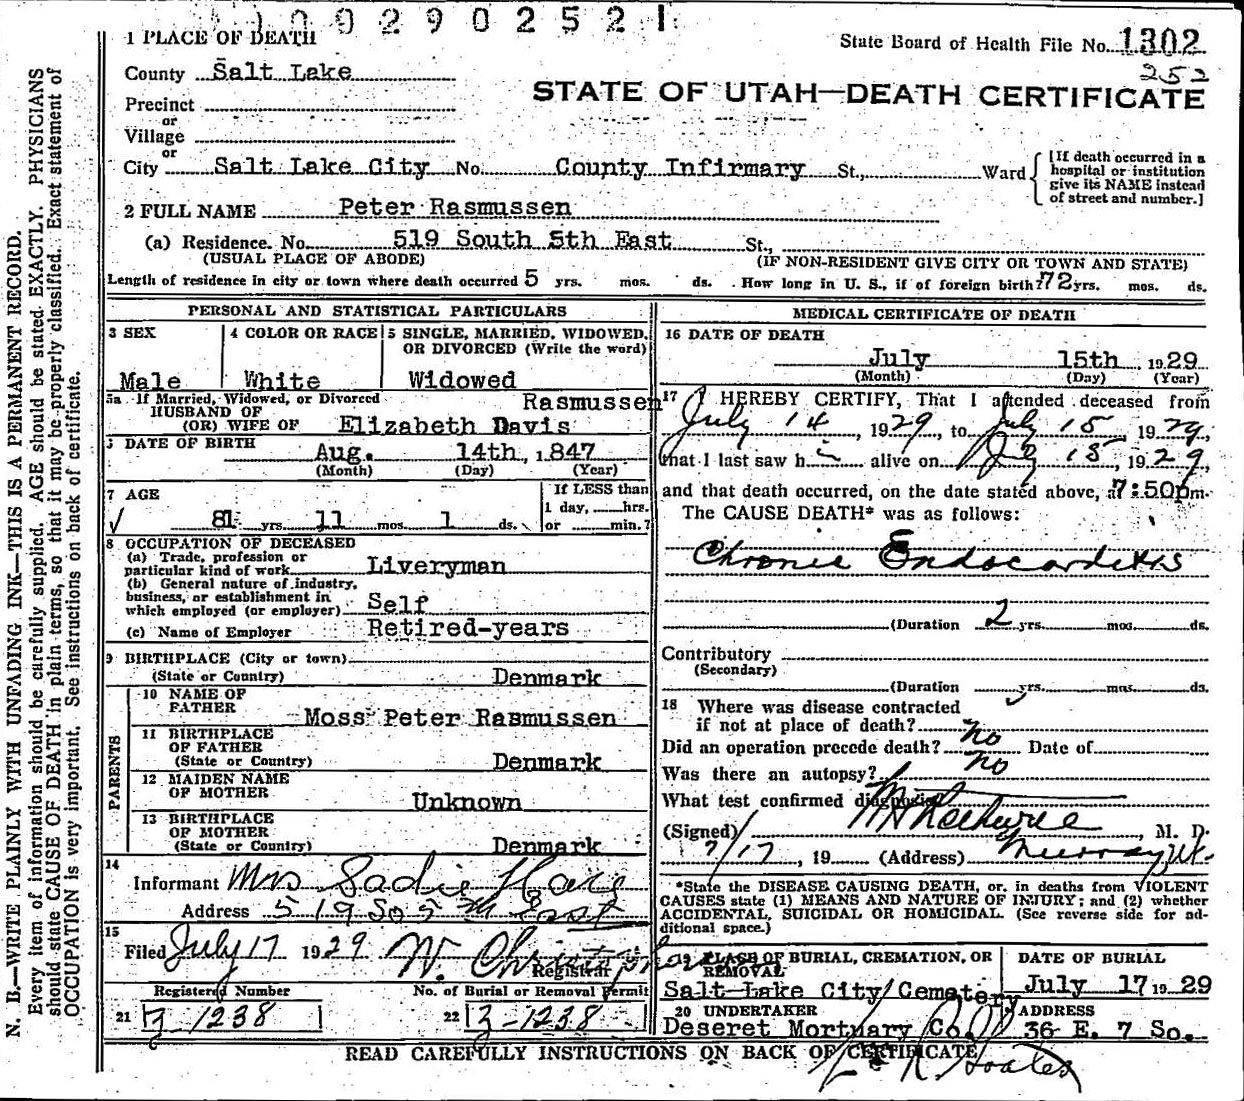 1002902521
1 PLACE OF DEATH
State Board of Health File No. 1302
252
County Salt Lake
STATE OF UTAH—DEATH CERTIFICATE
Precinct
or
Village
or
City Salt Lake City No. County Infirmary St., Ward
[If death occurred in a
hospital or institution
give its NAME instead
of street and number.]
2 FULL NAME Peter Rasmussen
(a) Residence. No. 519 South 5th East St.,
(USUAL PLACE OF ABODE) (IF NON-RESIDENT GIVE CITY OR TOWN AND STATE)
Length of residence in city or town where death occurred 5 yrs. mos. ds. How long in U. S., if of foreign birth? 72 yrs. mos. ds.
PERSONAL AND STATISTICAL PARTICULARS
3 SEX
Male
4 COLOR OR RACE
White
5 SINGLE, MARRIED, WIDOWED,
OR DIVORCED (Write the word)
Widowed
5a If Married, Widowed, or Divorced
HUSBAND OF
(OR) WIFE OF
Rasmussen
Elizabeth Davis
DATE OF BIRTH
Aug. 14th, 1847
(Month) (Day) (Year)
7 AGE
81 yrs. 11 mos. 1 ds.
If LESS than
1 day, hrs.
or min.?
8 OCCUPATION OF DECEASED
(a) Trade, profession or
particular kind of work Liveryman
(b) General nature of industry,
business, or establishment in
which employed (or employer) Self
(c) Name of Employer Retired-years
9 BIRTHPLACE (City or town)
(State or Country) Denmark
PARENTS
10 NAME OF
FATHER
Moss Peter Rasmussen
11 BIRTHPLACE
OF FATHER
(State or Country) Denmark
12 MAIDEN NAME
OF MOTHER
Unknown
13 BIRTHPLACE
OF MOTHER
(State or Country) Denmark
14
Informant Mrs Sadie
Address 519 So 5th East
15
Filed July 17 1929 W. Christopherson
Registrar
Registered Number No. of Burial or Removal Permit
21 3-1238 22 3-1238
MEDICAL CERTIFICATE OF DEATH
16 DATE OF DEATH
July 15th 1929
(Month) (Day) (Year)
17 I HEREBY CERTIFY, That I attended deceased from
July 14, 1929, to July 15, 1929,
that I last saw hi alive on July 15, 1929,
and that death occurred, on the date stated above, at 7:50pm.
The CAUSE DEATH* was as follows:
Chronic Endocarditis
(Duration 2 yrs. mos. ds.
Contributory
(Secondary)
(Duration yrs. mos. ds.
18 Where was disease contracted
if not at place of death?
Did an operation precede death? no Date of
Was there an autopsy? no
What test confirmed diagnosis?
(Signed) , M. D.
7/17, 19 (Address) Murray, Ut.
*State the DISEASE CAUSING DEATH, or, in deaths from VIOLENT
CAUSES state (1) MEANS AND NATURE OF INJURY; and (2) whether
ACCIDENTAL, SUICIDAL OR HOMICIDAL. (See reverse side for ad-
ditional space.)
19 PLACE OF BURIAL, CREMATION, OR
REMOVAL
Salt Lake City Cemetery
DATE OF BURIAL
July 17 1929
20 UNDERTAKER
Deseret Mortuary Co.
ADDRESS
36 E. 7 So.
READ CAREFULLY INSTRUCTIONS ON BACK OF CERTIFICATE
N. B.—WRITE PLAINLY WITH UNFADING INK—THIS IS A PERMANENT RECORD.
Every item of information should be carefully supplied. AGE should be stated EXACTLY. PHYSICIANS
should state CAUSE OF DEATH in plain terms, so that it may be properly classified. Exact statement of
OCCUPATION is very important. See instructions on back of certificate.